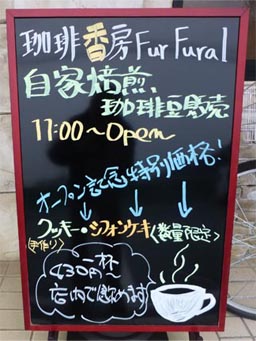 珈琲香房Fur Fural
自家焙煎、
珈琲豆販売
11:00～Open
オープン記念特別価格!
クッキー・シフォンケーキ(数量限定)
(手作り)
一杯
430円～
店内で飲めます